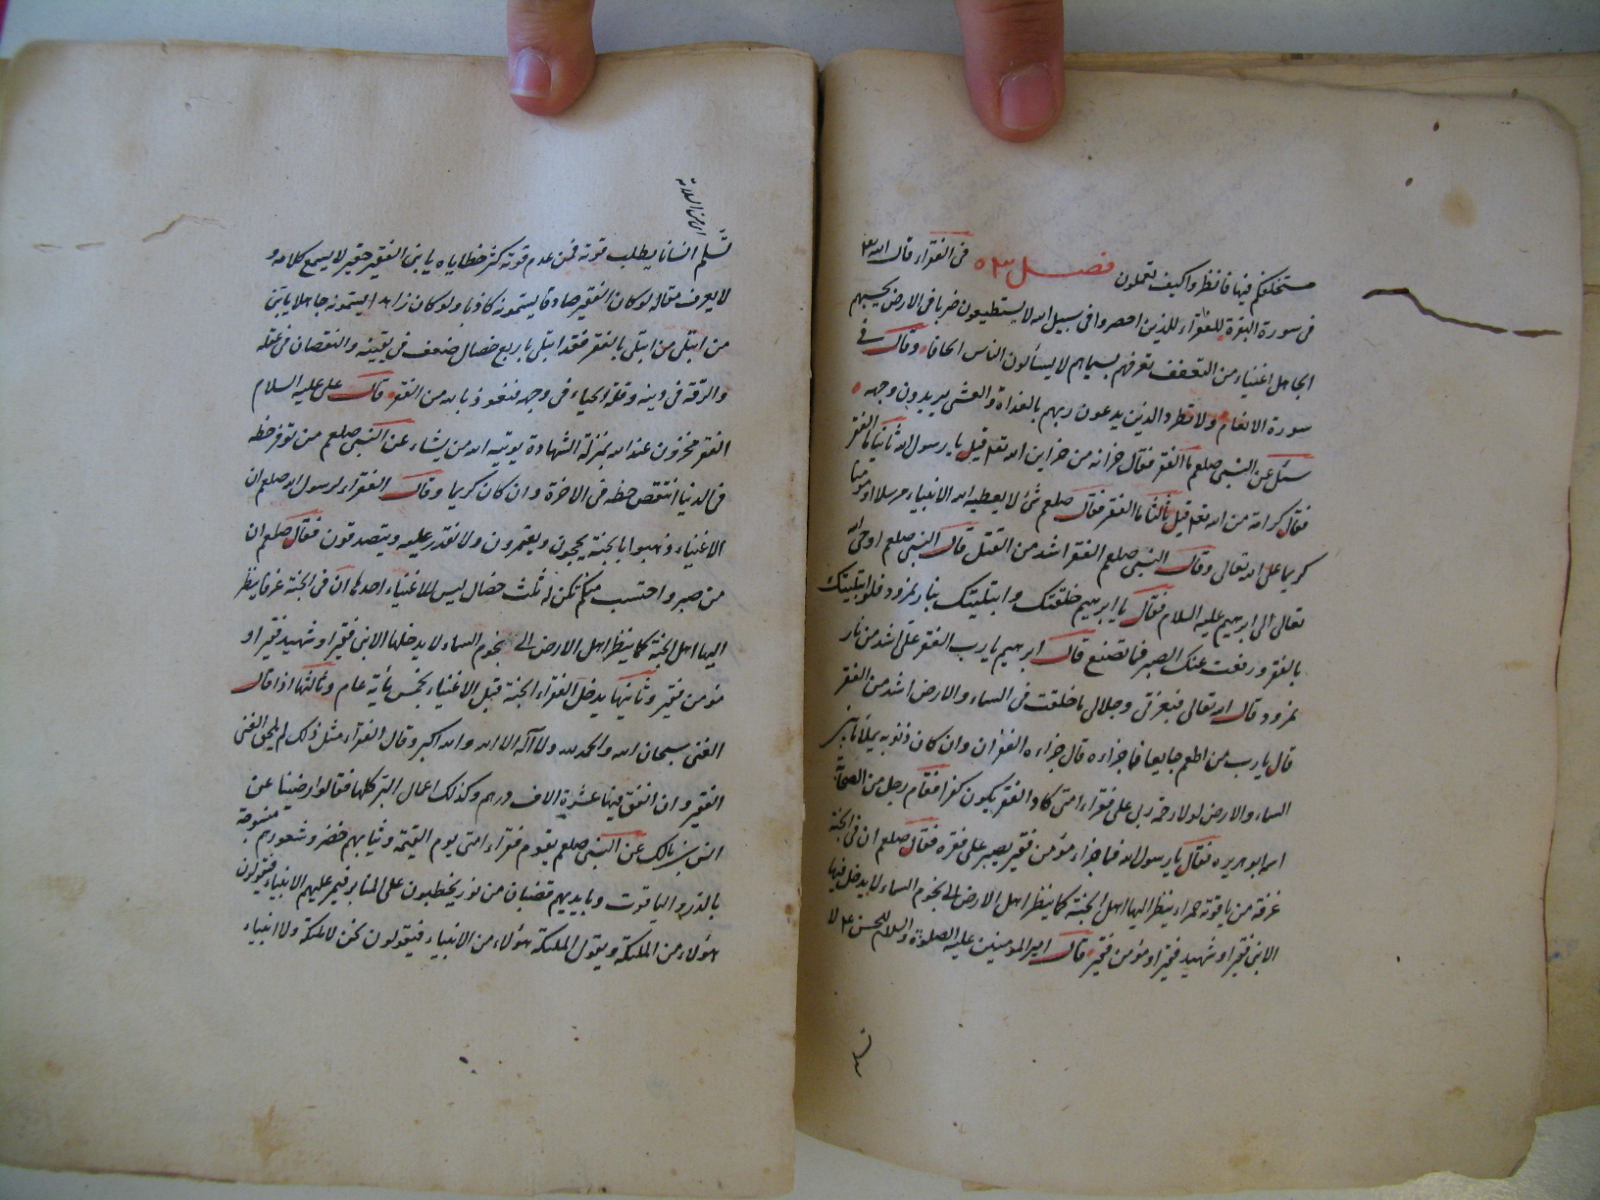 مستخلفكم فيها فانظروا كيف تعملون فصل ٥٣ فى الفقراء قال الله تع
فى سورة البقرة للفقراء للذين احصروا فى سبيل الله لا يستطيعون ضربا فى الارض يحسبهم
الجاهل اغنياء من التعفف تعرفهم بسيماهم لا يسألون الناس الحافا وقال فى
سورة الانعام ولا تطرد الذين يدعون ربهم بالغداة والعشى يريدون وجهه
سئل عن النبى صلعم ما الفقر فقال خزانة من خزاين الله تعا قيل يا رسول الله ثانيا ما الفقر
فقال كرامة من الله تعا قيل ثالثا ما الفقر فقال صلعم شئ لا يعطيه الله الا نبيا مرسلا او مؤمنا
كريما على الله تعالى وقال النبى صلعم الفقر اشد من القتل قال النبى صلعم اوحى الله
تعالى الى ابرهيم عليه السلام فقال يا ابرهيم خلقتك وابتليتك بنار نمرود فلو ابتليتك
بالفقر ورفعت عنك الصبر فما تصنع قال ابرهيم يا رب الفقر على اشد من نار
نمرود قال الله تعالى فبعزتى وجلالى ما خلقت فى السماء والارض اشد من الفقر
قال يا رب من اطعم جايعا فما جزاءه قال جزاءه الغفران وان كان ذنوبه يملأ ما بين
السماء والارض لولا رحمة ربى على فقراء امتى كاد الفقر يكون كفرا فقام رجل من الصحابة
اسمه ابو هريره فقال يا رسول الله فما جزاء مؤمن فقير يصبر على فقره فقال صلعم ان فى الجنة
غرفة من ياقوتة حمراء ينظر اليها اهل الجنة كما ينظر اهل الارض الى نجوم السماء لا يدخل فيها
الا نبى فقير او شهيد فقير او مؤمن فقير قال امير المومنين عليه الصلوة والسلام للحسن ع لا
تلم انسانا يطلب قوته فمن عدم قوته كثر خطاياه يا بنى الفقير حقير لا يسمع كلامه و
لا يعرف مقامه لو كان الفقير صادقا يسمونه كاذبا ولو كان زاهدا يسمونه جاهلا يا بنى
من ابتلى من ابتلى بالفقر فقد ابتلى باربع خصال ضعف فى يقينه والنقصان فى عقله
والرقة فى دينه وقلة الحياء فى وجهه فنعوذ بالله من الفقر قال على عليه السلام
الفقر مخزون عند الله بمنزلة الشهادة يوتيه الله من يشاء عن النبى صلعم من توفر حظه
فى الدنيا انتقص حظه فى الاخرة وان كان كريما وقال الفقراء لرسول الله صلعم ان
الاغنياء ذهبوا بالجنة يحجون ويعمرون ولا نقدر عليه ويتصدقون فقال صلعم ان
من صبر واحتسب منكم تكن له ثلث خصال ليس للاغنياء احدها ان فى الجنة غرفا ينظر
اليها اهل الجنة كما ينظر اهل الارض الى نجوم السماء لا يدخلها الا نبى فقير او شهيد فقير او
مؤمن فقير وثانيها يدخل الفقراء الجنة قبل الاغنياء بخمس مأية عام وثالثها اذا قال
الغنى سبحان الله والحمد لله ولا اله الا الله والله اكبر وقال الفقراء مثل ذلك لم يلحق الغنى
الفقير وان انفق فيها عشرة الاف درهم وكذلك اعمال البر كلها فقالوا رضينا عن
انس بن مالك عن النبى صلعم يقوم فقراء امتى يوم القيمة وثيابهم خضر وشعورهم منسوجة
بالدر والياقوت وبايديهم قضبان من نور يخطبون على المنابر فيمر عليهم الانبياء فيقولون
هؤلاء من الملئكة ويقول الملئكة هؤلاء من الانبياء فيقولون نحن لا ملئكة ولا انبياء